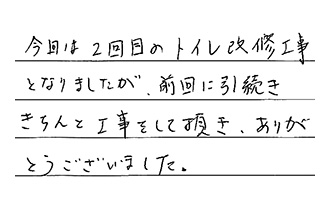 今回は2回目のトイレ改修工事
となりましたが、前回に引続き
きちんと工事をして頂き、ありが
とうございました。